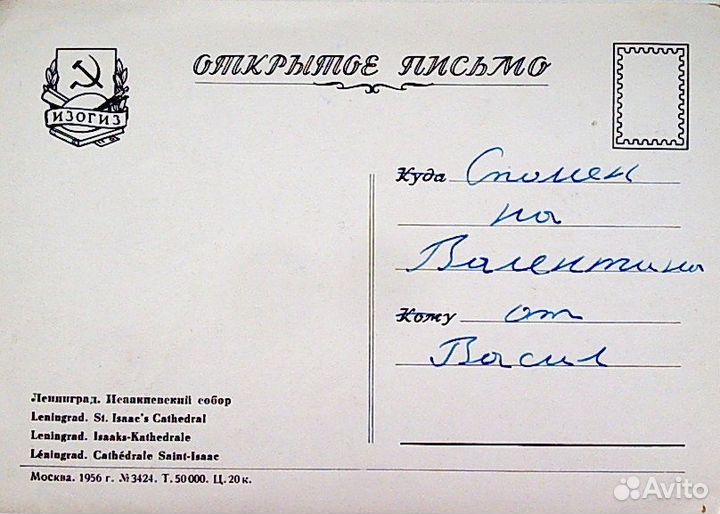 ОТКРЫТОЕ ПИСЬМО
ИЗОГИЗ
Куда Спомен
на
Валентина
Кому от
Васил
Ленинград. Исаакиевский собор
Leningrad. St. Isaac's Cathedral
Leningrad. Isaaks-Kathedrale
Léningrad. Cathédrale Saint-Isaac
Москва. 1956 г. №3424. Т. 50 000. Ц. 20 к.
Avito